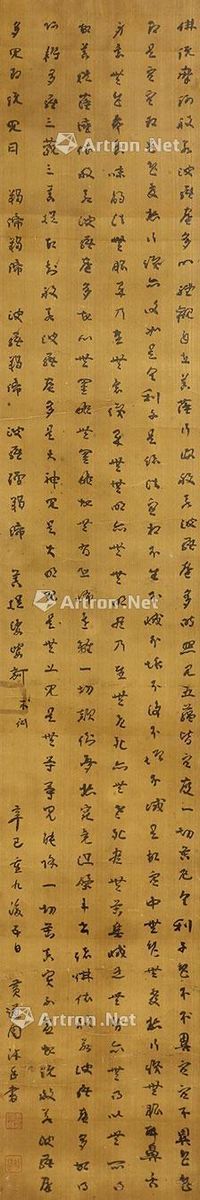 佛說摩訶般若波羅蜜多心經觀自在菩薩行深般若波羅蜜多時照見五蘊皆空度一切苦厄舍利子色不異空空不異色色
即是空空即是色受想行識亦復如是舍利子是諸法空相不生不滅不垢不淨不增不減是故空中無色無受想行識無眼耳鼻舌
身意無色聲香味觸法無眼界乃至無意識界無無明亦無無明盡乃至無老死亦無老死盡無苦集滅道無智亦無得以無所得
故菩提薩埵依般若波羅蜜多故心無罣礙無罣礙故無有恐怖遠離一切顛倒夢想究竟涅槃三世諸佛依般若波羅蜜多故得
阿耨多羅三藐三菩提故知般若波羅蜜多是大神咒是大明咒是無上咒是無等等咒能除一切苦真實不虛故說般若波羅蜜
多咒即說咒曰 揭諦揭諦 波羅揭諦 波羅僧揭諦 菩提薩婆訶 辛巳重九後日 黃 沐手書
Artron.Net
Artron.Net
Artron.Net